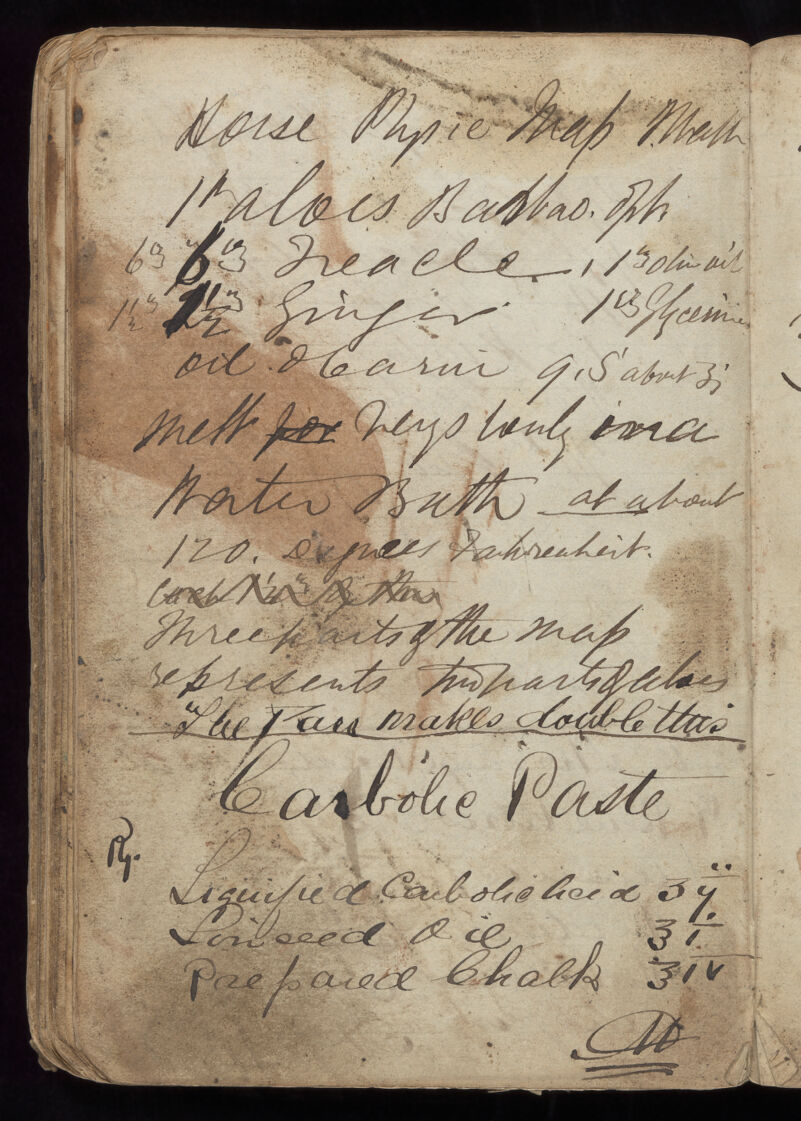 Horse Physic Map Math
1 ℔ aloes Barbao. Opt
6℥ 6℥ Treacle, 1℥ oliv oil
1½℥ 1½℥ Ginger 1℥ Glycerine
oil Carui q.s about ʒj
Melt for very slowly in a
Water Bath at about
120. degrees Fahrenheit.
Three parts of the map
represents two parts of aloes
The Pan makes double this
Carbolic Paste
Rx.
Liquified Carbolic Acid ʒij
Linseed Oil ℥i
Prepared Chalk ℥iv
M